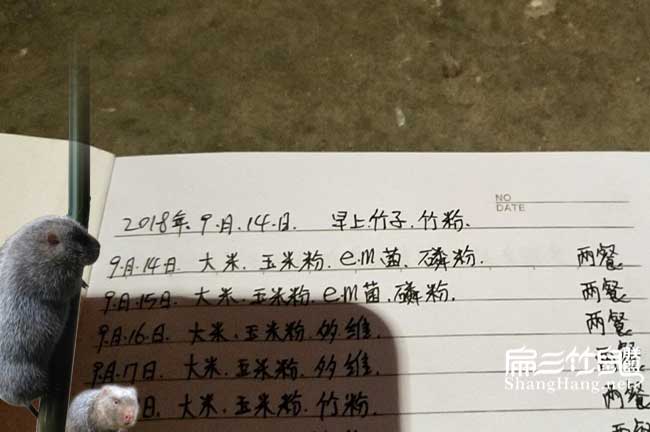 NO
DATE
2018年.9.月.14.日. 早上.竹子.竹粉.
9.月.14日. 大米.玉米粉.em菌.磷粉. 两餐
9.月.15日. 大米.玉米粉.em菌.磷粉. 两餐
9.月.16.日. 大米.玉米粉.多维. 两餐
9.月.7日. 大米.玉米粉.多维.
日. 大米.玉米粉.竹粉. 两餐
扁三竹鼠
ShangHang.net